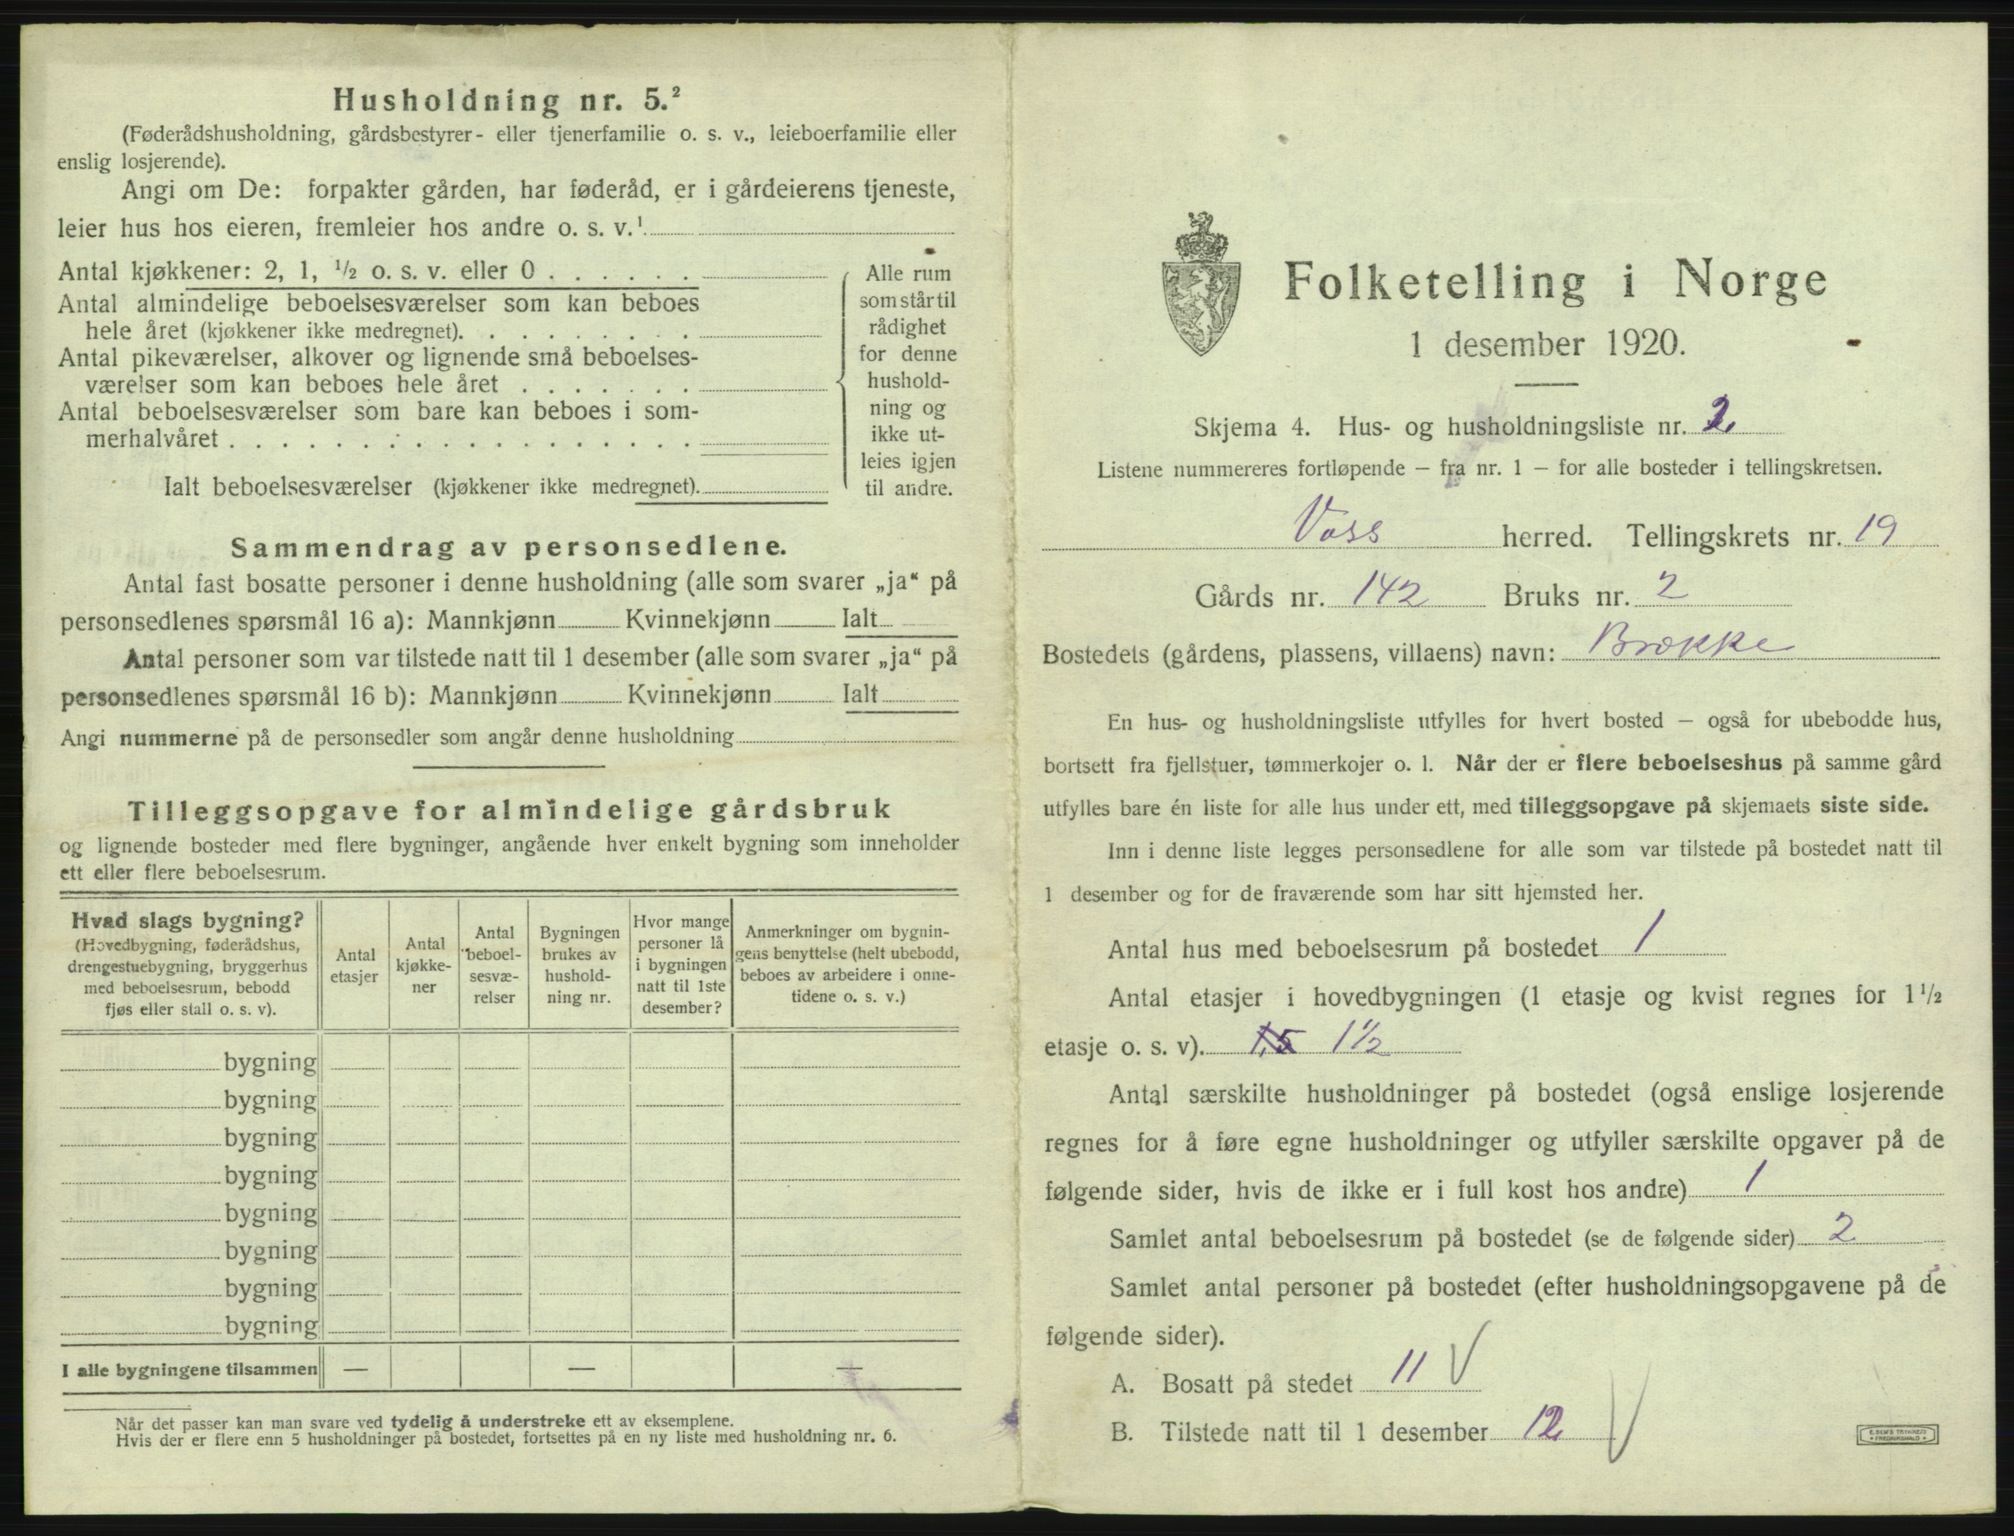 Husholdning nr. 5.²
(Føderådshusholdning, gårdsbestyrer- eller tjenerfamilie o. s. v., leieboerfamilie eller
enslig losjerende).
Angi om De: forpakter gården, har føderåd, er i gårdeierens tjeneste,
leier hus hos eieren, fremleier hos andre o. s. v.¹
Antal kjøkkener: 2, 1, ½ o. s. v. eller 0 . . . . . .
Antal almindelige beboelsesværelser som kan beboes
hele året (kjøkkener ikke medregnet). . . . . . . .
Antal pikeværelser, alkover og lignende små beboelses-
værelser som kan beboes hele året . . . . . . .
Antal beboelsesværelser som bare kan beboes i som-
merhalvåret . . . . . . . . . . . . . . . . . .
Ialt beboelsesværelser (kjøkkener ikke medregnet).
Alle rum
som står til
rådighet
for denne
hushold-
ning og
ikke ut-
leies igjen
til andre.
Sammendrag av personsedlene.
Antal fast bosatte personer i denne husholdning (alle som svarer „ja“ på
personsedlenes spørsmål 16 a): Mannkjønn Kvinnekjønn Ialt
Antal personer som var tilstede natt til 1 desember (alle som svarer „ja“ på
personsedlenes spørsmål 16 b): Mannkjønn Kvinnekjønn Ialt
Angi nummerne på de personsedler som angår denne husholdning
Tilleggsopgave for almindelige gårdsbruk
og lignende bosteder med flere bygninger, angående hver enkelt bygning som inneholder
ett eller flere beboelsesrum.
Hvad slags bygning?
(Hovedbygning, føderådshus,
drengestuebygning, bryggerhus
med beboelsesrum, bebodd
fjøs eller stall o. s. v).
Antal
etasjer
Antal
kjøkke-
ner
Antal
beboel-
sesvæ-
relser
Bygningen
brukes av
hushold-
ning nr.
Hvor mange
personer lå
i bygningen
natt til 1ste
desember?
Anmerkninger om bygnin-
gens benyttelse (helt ubebodd,
beboes av arbeidere i onne-
tidene o. s. v.)
bygning
bygning
bygning
bygning
bygning
bygning
bygning
bygning
I alle bygningene tilsammen — — —
Når det passer kan man svare ved tydelig å understreke ett av eksemplene.
Hvis der er flere enn 5 husholdninger på bostedet, fortsettes på en ny liste med husholdning nr. 6.
Folketelling i Norge
1 desember 1920.
Skjema 4. Hus- og husholdningsliste nr. 2
Listene nummereres fortløpende — fra nr. 1 — for alle bosteder i tellingskretsen.
Voss herred. Tellingskrets nr. 19
Gårds nr. 142 Bruks nr. 2
Bostedets (gårdens, plassens, villaens) navn: Brække
En hus- og husholdningsliste utfylles for hvert bosted — også for ubebodde hus,
bortsett fra fjellstuer, tømmerkojer o. l. Når der er flere beboelseshus på samme gård
utfylles bare én liste for alle hus under ett, med tilleggsopgave på skjemaets siste side.
Inn i denne liste legges personsedlene for alle som var tilstede på bostedet natt til
1 desember og for de fraværende som har sitt hjemsted her.
Antal hus med beboelsesrum på bostedet 1
Antal etasjer i hovedbygningen (1 etasje og kvist regnes for 1½
etasje o. s. v). 1,5 1½
Antal særskilte husholdninger på bostedet (også enslige losjerende
regnes for å føre egne husholdninger og utfyller særskilte opgaver på de
følgende sider, hvis de ikke er i full kost hos andre) 1
Samlet antal beboelsesrum på bostedet (se de følgende sider) 2
Samlet antal personer på bostedet (efter husholdningsopgavene på de
følgende sider).
A. Bosatt på stedet 11 V
B. Tilstede natt til 1 desember 12 V
E. SEM'S TRYKKERI
FREDRIKSHALD